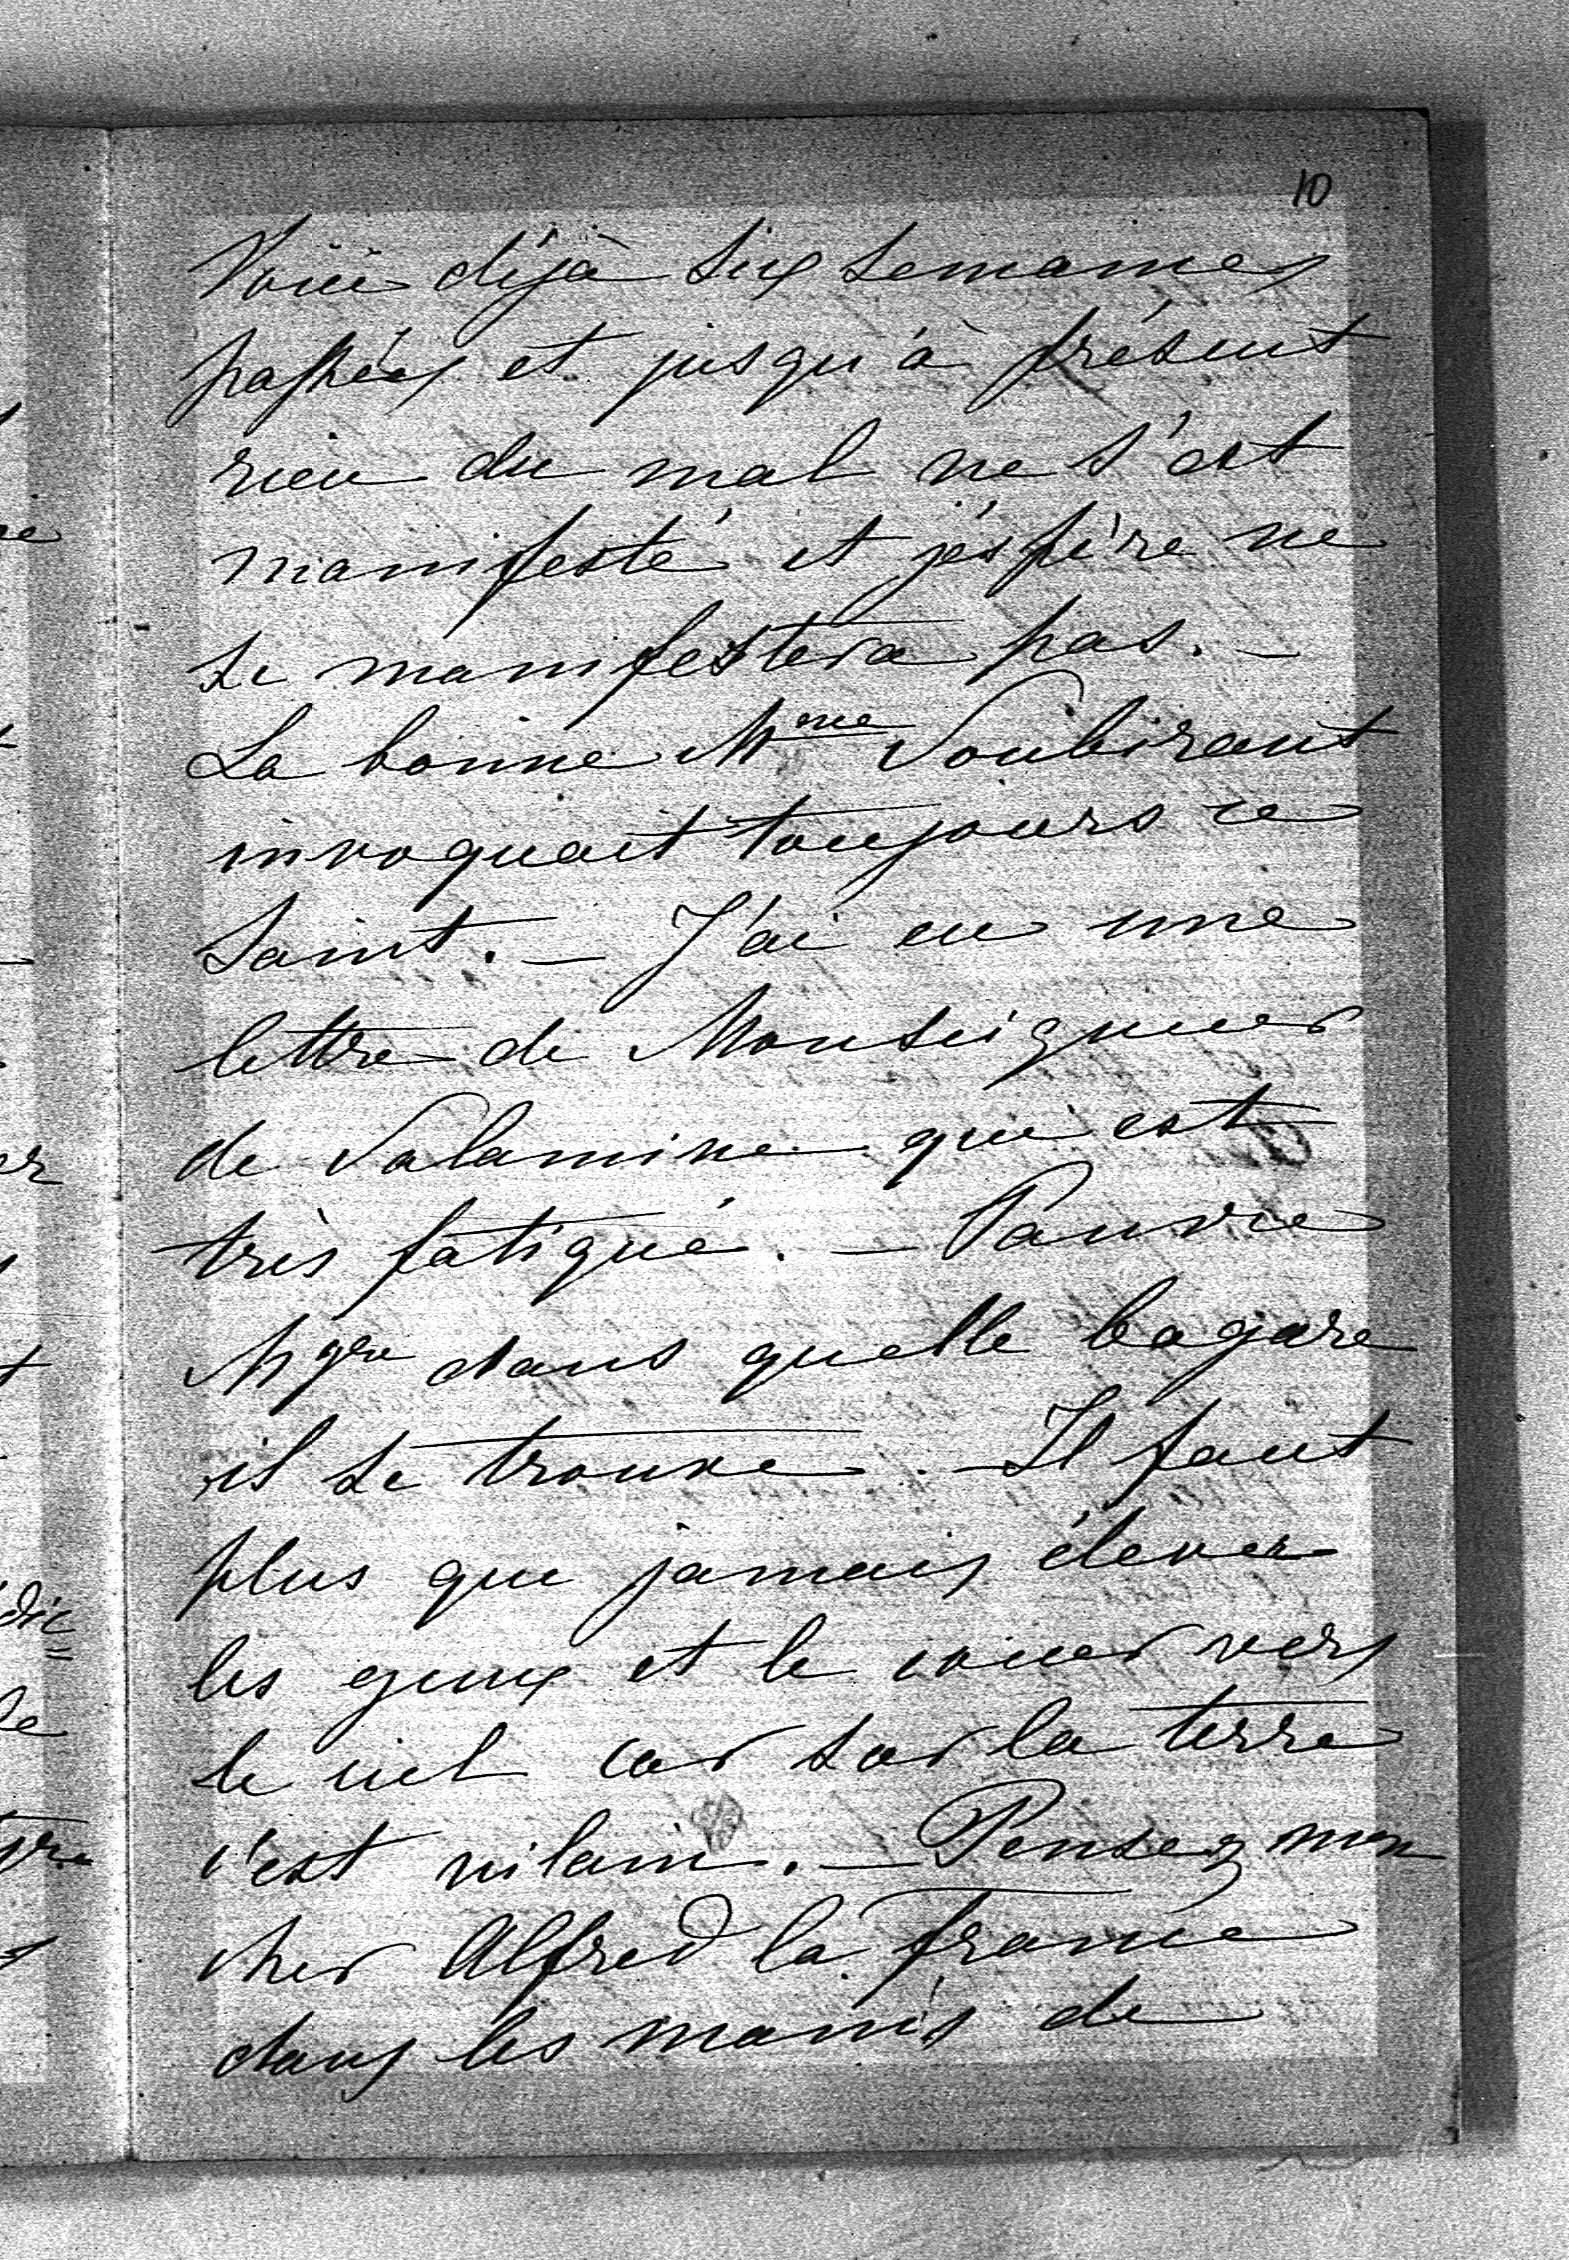 10
Voici déjà six semaines
passées et jusqu'à présent
rien du mal ne s'est
manifesté et j'éspère ne
se manifestera pas. –
La bonne Mme Soubirant
invoquait toujours ce
Saint. – J'ai eu une
lettre de Monseigneur
de Salamine qui est
très fatigué. – Pauvre
Mgre dans quelle bagare
il se trouve. – Il faut
plus que jamais élever
les yeux et le coeur vers
le ciel car sur la terre
c'est vilain. – Pensez mon
cher Alfred la france
dans les mains de